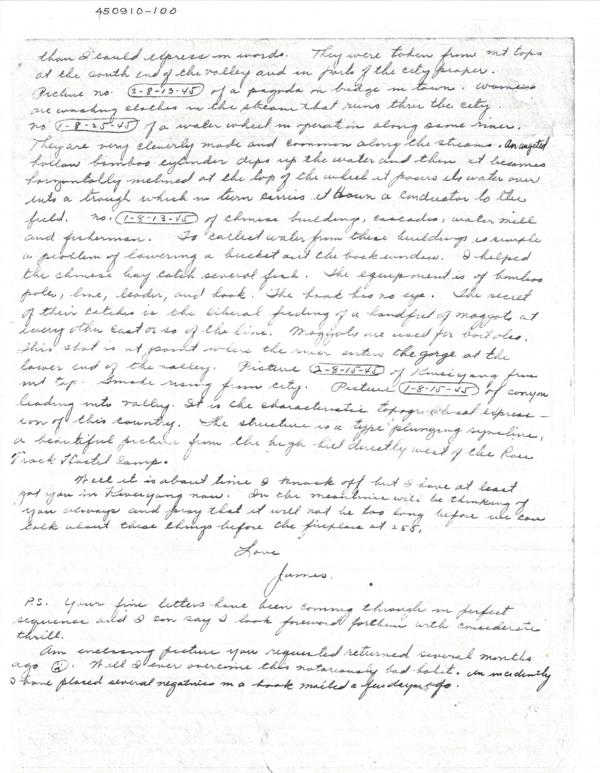 450910-100
than I could express in words. They were taken from mt tops
at the south end of the valley and in parts of the city proper.
Picture no. (2-8-13-45) of a pagoda on bridge in town. Women
are washing clothes in the stream that runs thru the city.
no (1-8-25-45) of a water wheel in operation along same river.
They are very cleverly made and common along the streams. An angeled
hollow bamboo cylinder dips up the water and then it becomes
horizontally inclined at the top of the wheel it pours its water over
into a trough which in turn carries it down a conductor to the
field. no. (1-8-13-45) of chinese buildings, cascades, water mill
and fisherman. To collect water from these buildings is simple
a problem of lowering a bucket out the back window. I helped
the chinese boy catch several fish. The equipment is of bamboo
pole, line, leader, and hook. The hook has no eye. The secret
of their catches is the liberal feeding of a handful of maggots at
every other cast or so of the line. Maggots are used for bait also.
This shot is at point where the river enters the gorge at the
lower end of the valley. Picture (2-8-15-45) of Kweiyang from
mt top. Smoke rising from city. Picture (1-8-15-45) of canyon
leading into valley. It is the characteristic topographical express-
ion of this country. The structure is a type plunging syncline,
a beautiful picture from the high hill directly west of the Race
Track Hostel Camp.
Well it is about time I knock off but I have at least
got you in Kweiyang now. In the meantime will be thinking of
you always and pray that it will not be too long before we can
talk about these things before the fireplace at 255.
Love
James.
P.S. Your fine letters have been coming through in perfect
sequence and I can say I look foreword for them with considerate
thrill.
Am enclosing picture you requested returned several months
ago. Will I ever overcome this notoriously bad habit. An incidently
I have placed several negatives in a book mailed a few days ago.